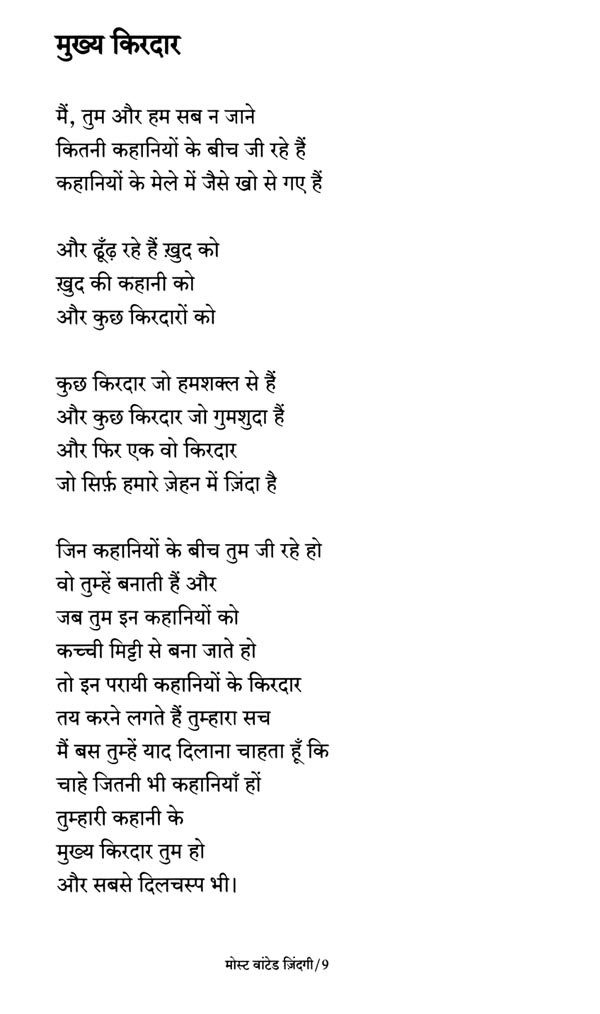 मुख्य किरदार
मैं, तुम और हम सब न जाने
कितनी कहानियों के बीच जी रहे हैं
कहानियों के मेले में जैसे खो से गए हैं
और ढूँढ़ रहे हैं ख़ुद को
ख़ुद की कहानी को
और कुछ किरदारों को
कुछ किरदार जो हमशक्ल से हैं
और कुछ किरदार जो गुमशुदा हैं
और फिर एक वो किरदार
जो सिर्फ़ हमारे ज़ेहन में ज़िंदा है
जिन कहानियों के बीच तुम जी रहे हो
वो तुम्हें बनाती हैं और
जब तुम इन कहानियों को
कच्ची मिट्टी से बना जाते हो
तो इन परायी कहानियों के किरदार
तय करने लगते हैं तुम्हारा सच
मैं बस तुम्हें याद दिलाना चाहता हूँ कि
चाहे जितनी भी कहानियाँ हों
तुम्हारी कहानी के
मुख्य किरदार तुम हो
और सबसे दिलचस्प भी।
मोस्ट वांटेड ज़िंदगी/9